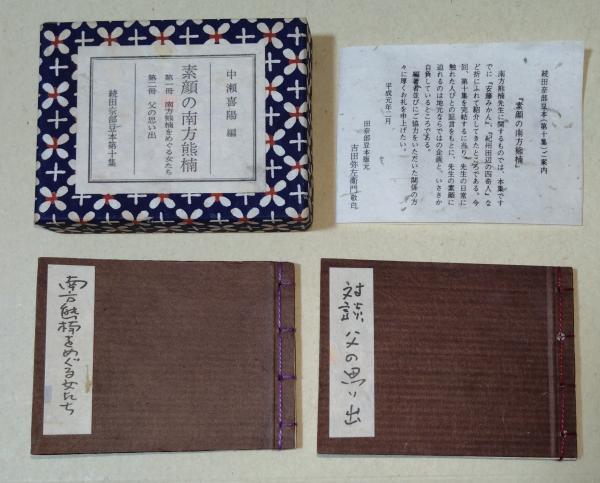 中瀬喜陽 編
素顔の南方熊楠
第一冊 南方熊楠をめぐる女たち
第二冊 父の思い出
続田奈部豆本第十集
続田奈部豆本(第十集)ご案内
『素顔の南方熊楠』
南方熊楠先生に関するものでは、本集です
でに「安藤みかん」「紀州田辺の四奇人」な
ど折にふれて紹介してきたところである。今
回、第十集を完結するに当り、先生の日常に
触れた人びとの証言をもとに、先生の素顔に
迫れるのは地元ならではの企画と、いささか
自負しているところである。
編著者並びにご協力をいただいた関係の方
々に厚くお礼を申上げたい。
平成元年一月
田奈部豆本版元
吉田弥左衛門敬白
南方熊楠をめぐる女たち
対談 父の思い出